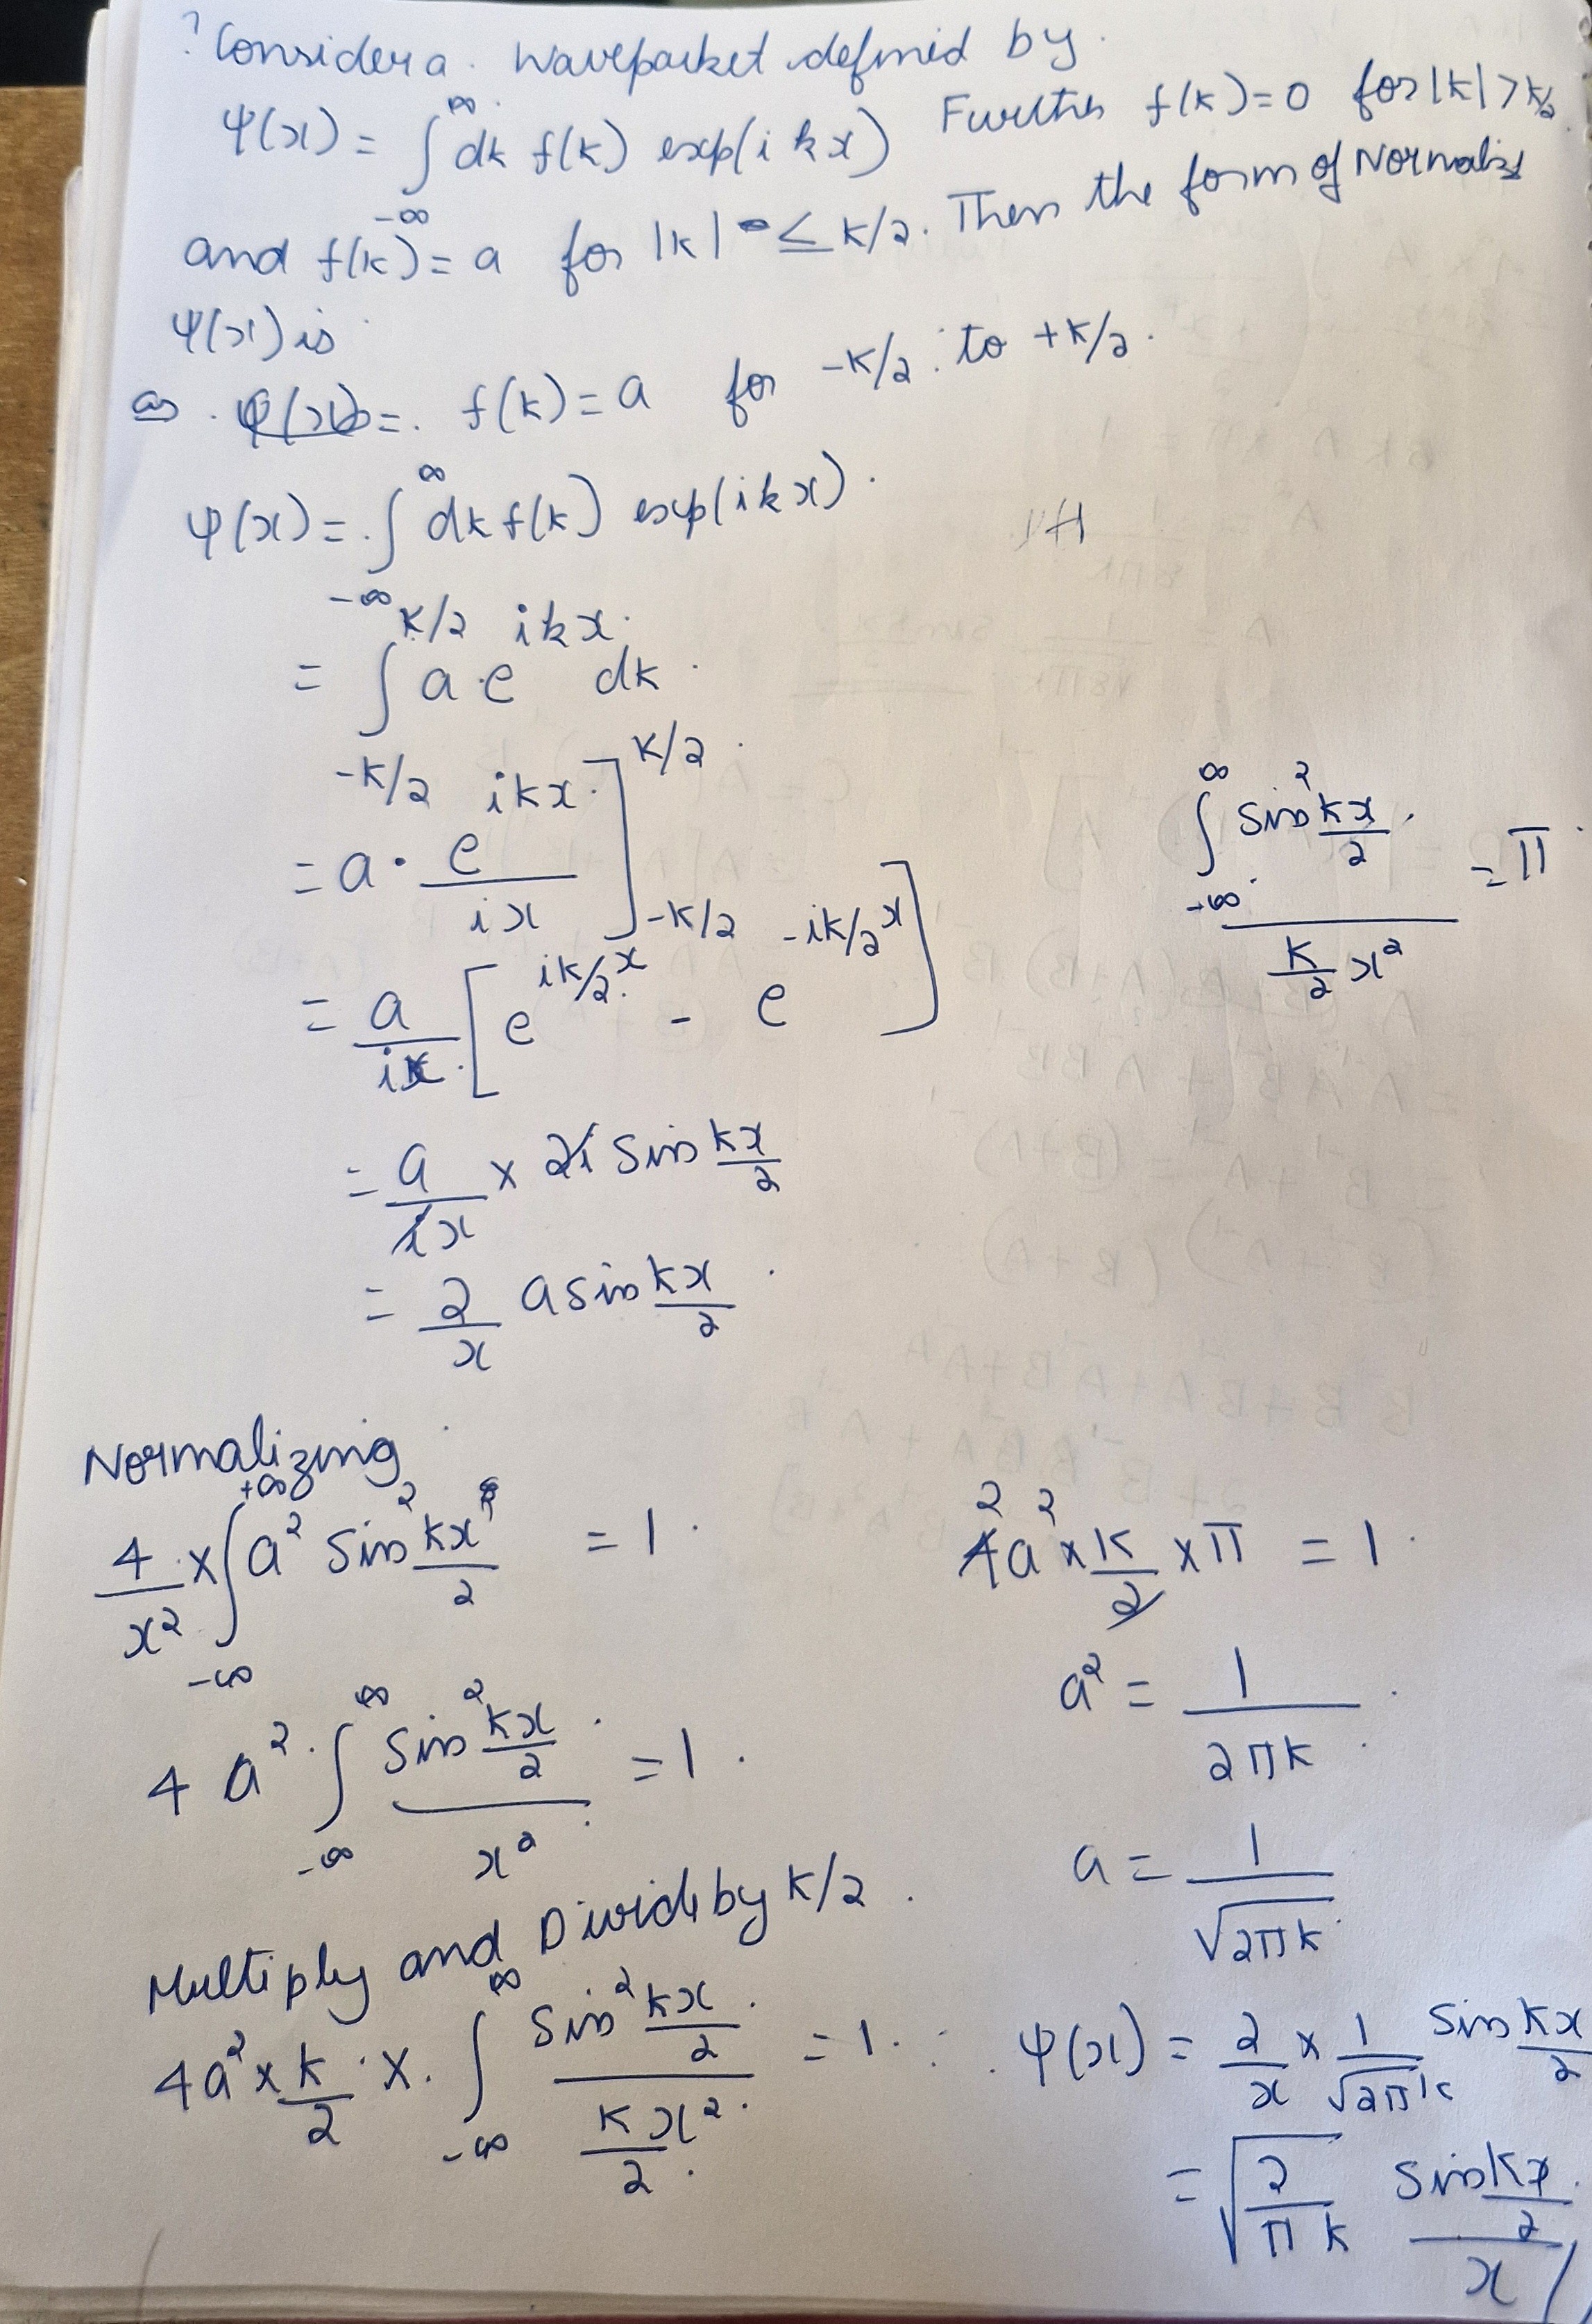 ? Consider a wavepacket defined by
ψ(x) = ∫_{-∞}^{∞} dk f(k) exp(i k x) Further f(k) = 0 for |k| > k/2
and f(k) = a for |k| ≤ k/2. Then the form of Normalised
ψ(x) is
as f(k) = a for -k/2 to +k/2.
ψ(x) = ∫_{-∞}^{∞} dk f(k) exp(i k x).
= ∫_{-k/2}^{k/2} a·e^{ikx} dk
= a · e^{ikx}/ix ]_{-k/2}^{k/2}
= a/ix [e^{ik/2 x} - e^{-ik/2 x}]
= a/ix × 2i sin kx/2
= 2/x a sin kx/2
∫_{-∞}^{∞} sin² kx/2 / (k/2 x²) = π
Normalizing
4/x² × ∫_{-∞}^{+∞} a² sin² kx/2 = 1
4 a² ∫_{-∞}^{∞} sin² kx/2 / x² = 1
Multiply and Divide by k/2
4a² × k/2 × ∫_{-∞}^{∞} sin² kx/2 / (k/2 x²) = 1
4a² × k/2 × π = 1
a² = 1/2πk
a = 1/√2πk
∴ ψ(x) = 2/x × 1/√2πk sin kx/2
= √(2/πk) sin kx/2 / x //